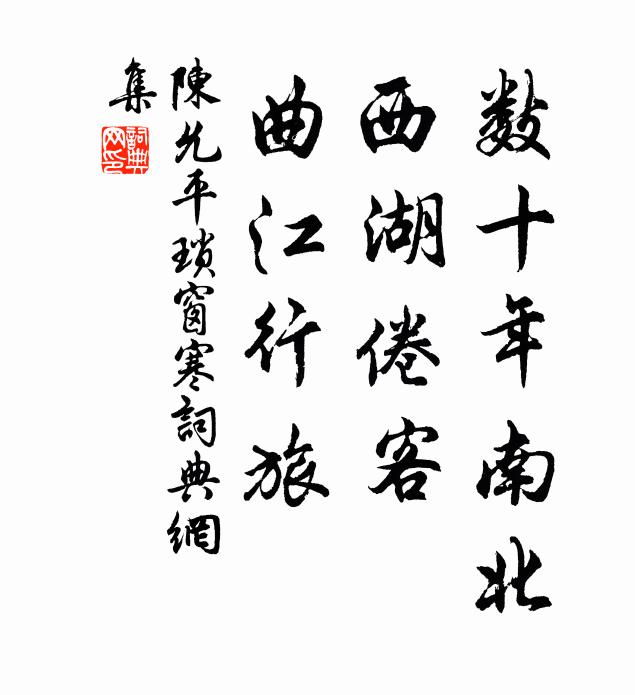 数十年南北
西湖倦客
曲江行旅
陳允平瑣窗寒詞典網
集
詞典
网印